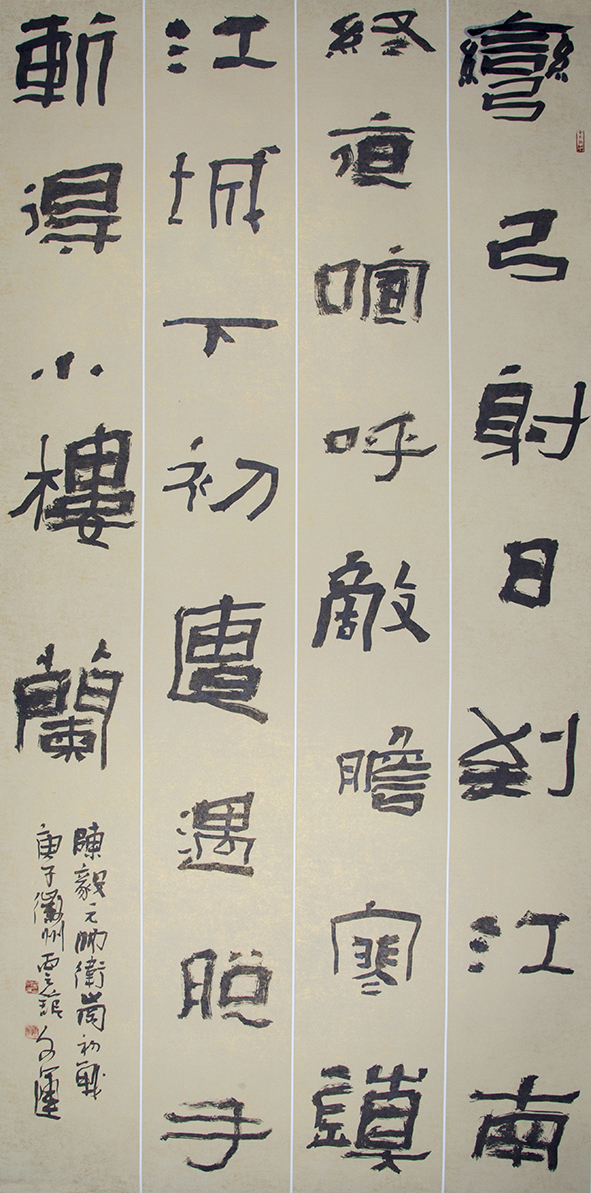 彎弓射日到江南
終夜喧呼敵膽寒鎮
江城下初遭遇脱手
斬得小樓蘭
陳毅元帥衛崗初戰
庚子徽州雲館文運